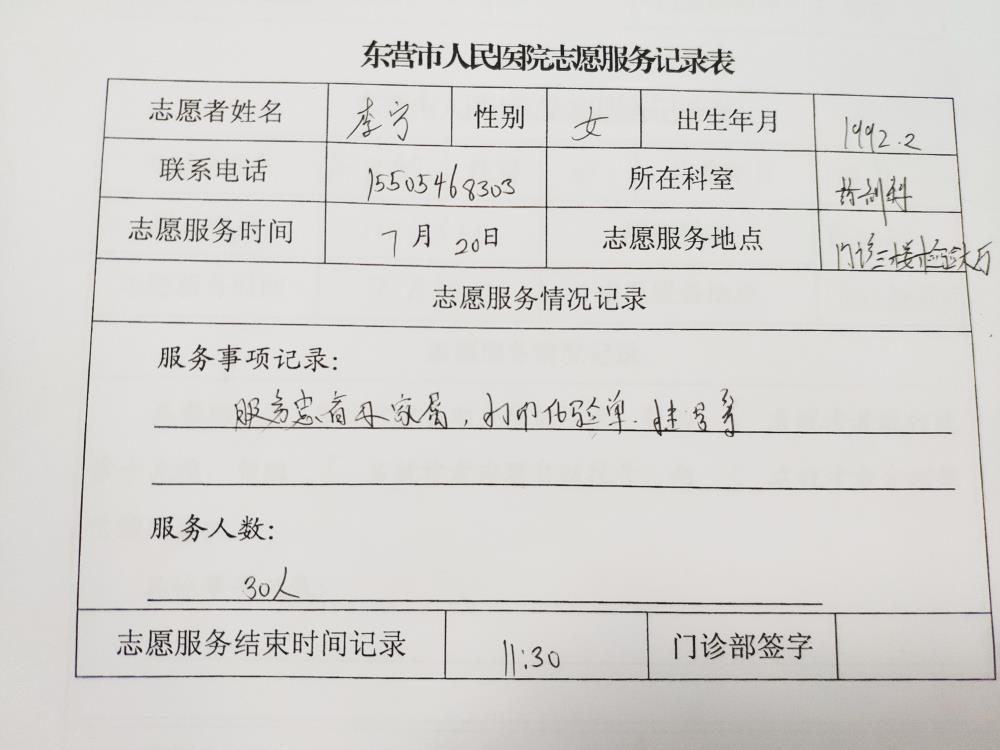 东营市人民医院志愿服务记录表
志愿者姓名 李宁 性别 女 出生年月 1992.2
联系电话 15505468303 所在科室 药剂科
志愿服务时间 7月20日 志愿服务地点 门诊三楼检验大厅
志愿服务情况记录
服务事项记录:
服务患者及家属,打印化验单.挂号等
服务人数:
30人
志愿服务结束时间记录 11:30 门诊部签字